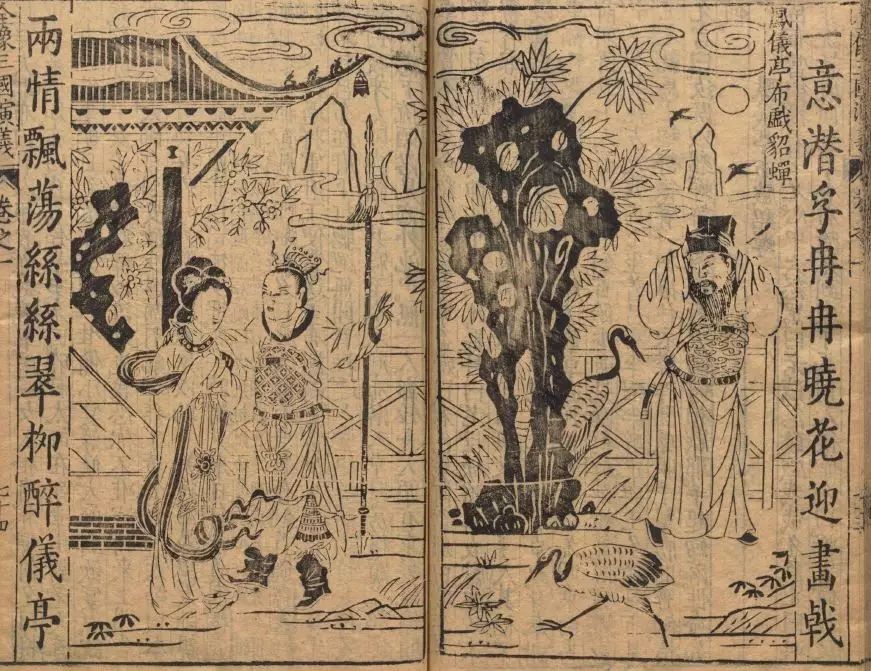 一意潛孚冉冉曉花迎畫戟
鳳儀亭布戲貂蟬
兩情飄蕩絲絲翠柳醉儀亭
全像三國演義
卷之一